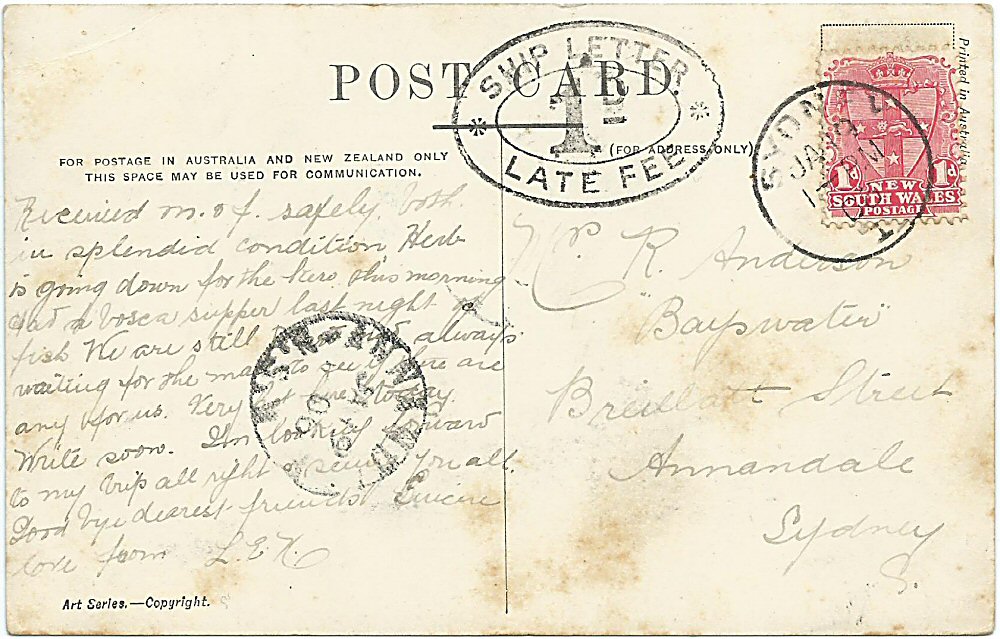 POST CARD.
SHIP LETTER
1D
LATE FEE
(FOR ADDRESS ONLY)
FOR POSTAGE IN AUSTRALIA AND NEW ZEALAND ONLY
THIS SPACE MAY BE USED FOR COMMUNICATION.
Printed in Australia
SYDNEY
JA
PM
1d NEW 1d
SOUTH WALES
POSTAGE
Received m. o f. safely both
in splendid condition Herb
is going down for the kero this morning
Had a bosca supper last night of
fish We are still and always
waiting for the mail to see if there are
any for us. Very today.
Write soon. Im looking forward
to my trip all right & seeing you all.
Good bye dearest friends Sincere
love from L.E.K.
R. Anderson
"Bayswater"
Street
Annandale
Sydney
Art Series.—Copyright.